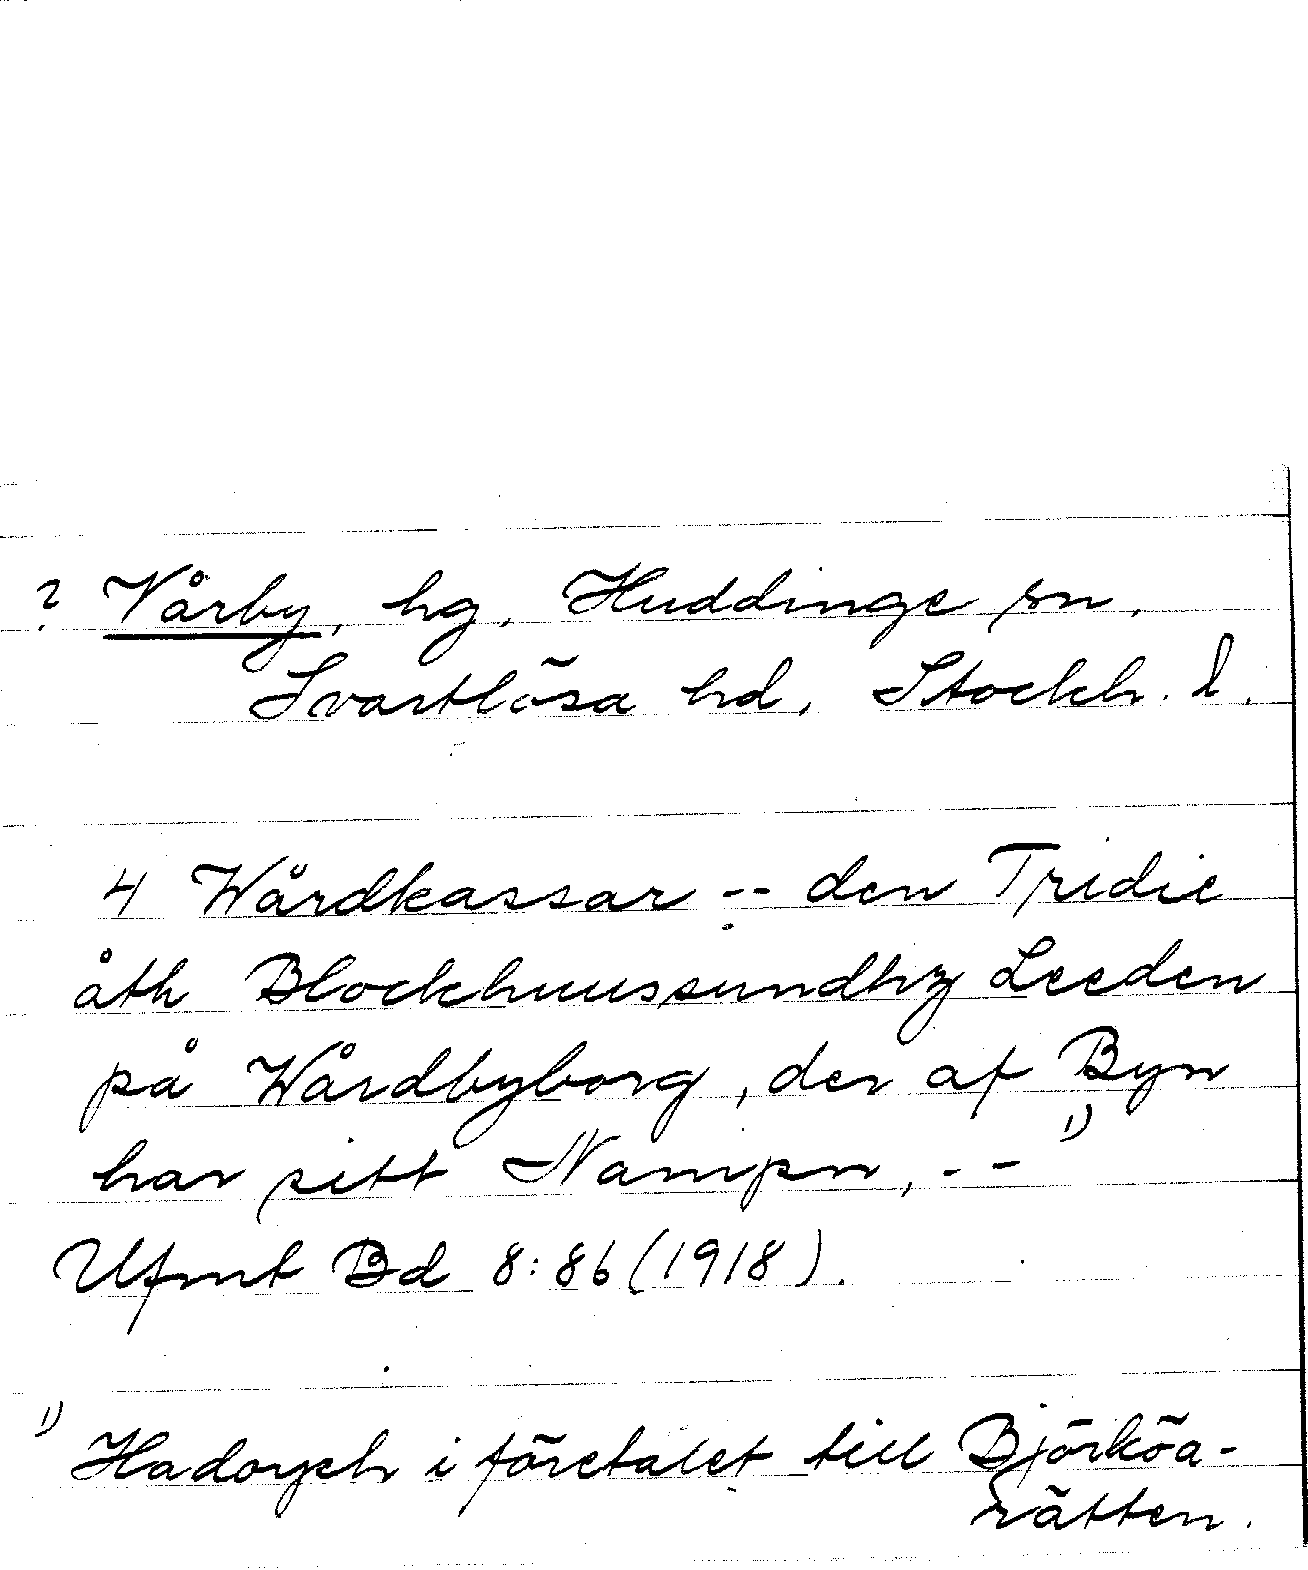 ? Vårby, hg, Huddinge sn,
Svartlösa hd, Stockh. l.
4 Wårdkassar -- den Tridie
åth Blockhuussundhz Leeden
på Wårdbyborg, der af Byn
har sitt Nampn, -- 1)
Ufmt Bd 8:86 (1918).
1) Hadorph i företalet till Björköa-
rätten.